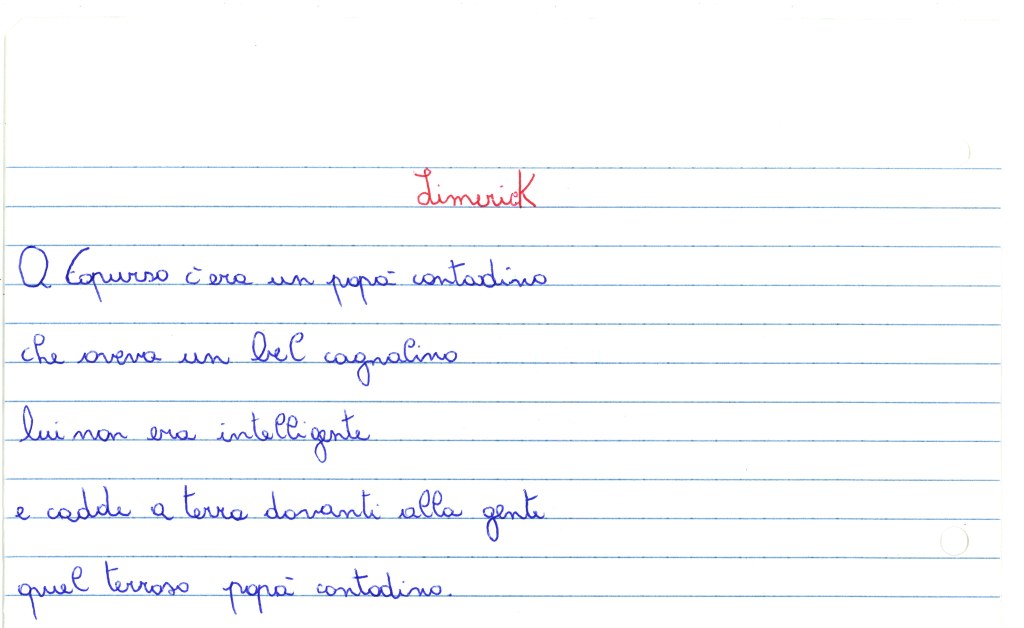 Limerick
A Capurso c'era un papà contadino
che aveva un bel cagnolino
lui non era intelligente
e cadde a terra davanti alla gente
quel terroso papà contadino.